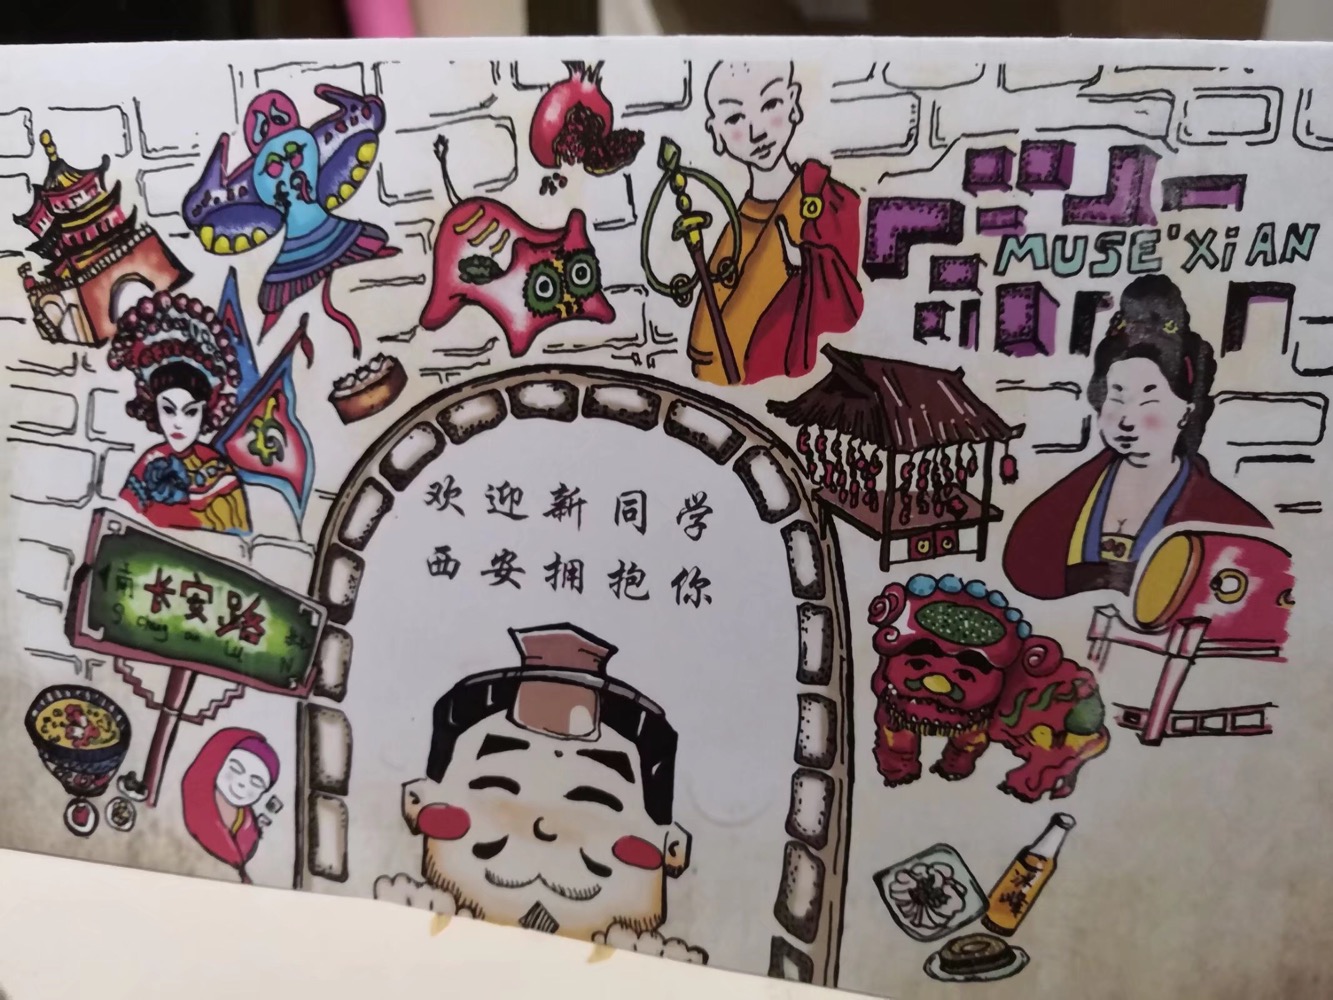 MUSE'XiAN
欢迎新同学
西安拥抱你
长安路
冰峰